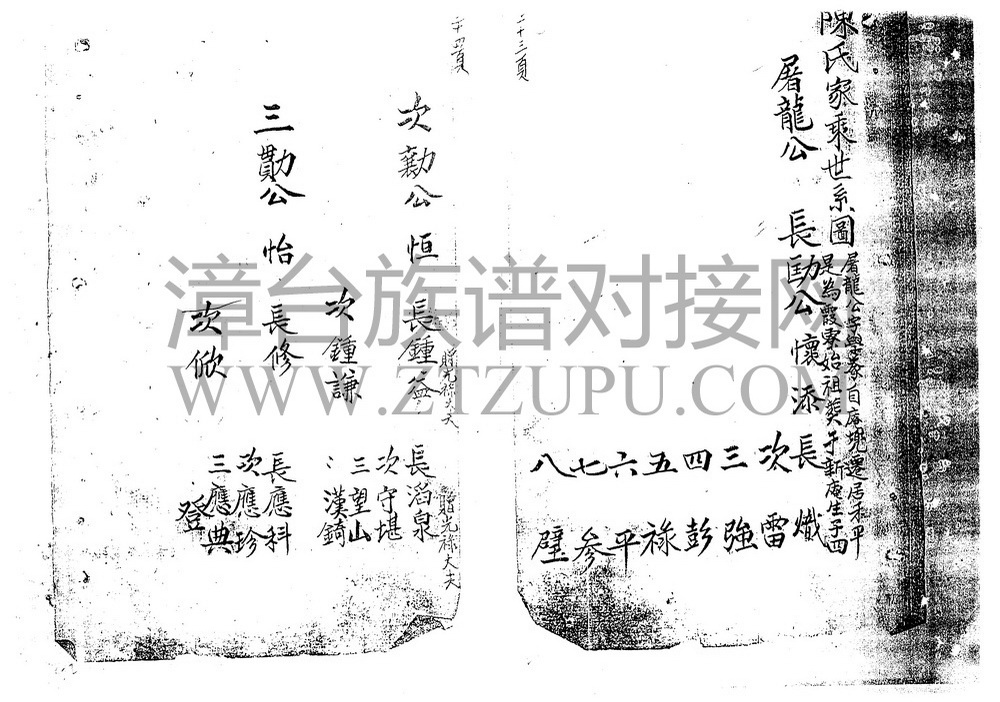 陳氏家乘世系圖
屠龍公字與豪自庵堍遷居禾平
是為霞寮始祖葬于新庵生子四
屠龍公 長勛公 懷添 長熾
次雷
三強
四彭
五祿
六平
七參
八璧
二十三頁
次勷公 恒 長鍾益 贈光祿大夫 長滔泉 贈光祿大夫
次守堪
次鍾謙 三望山
漢錡
三勩公 怡 長修 長應科
次應珍
次俽 三應典
登
漳台族谱对接网
WWW.ZTZUPU.COM